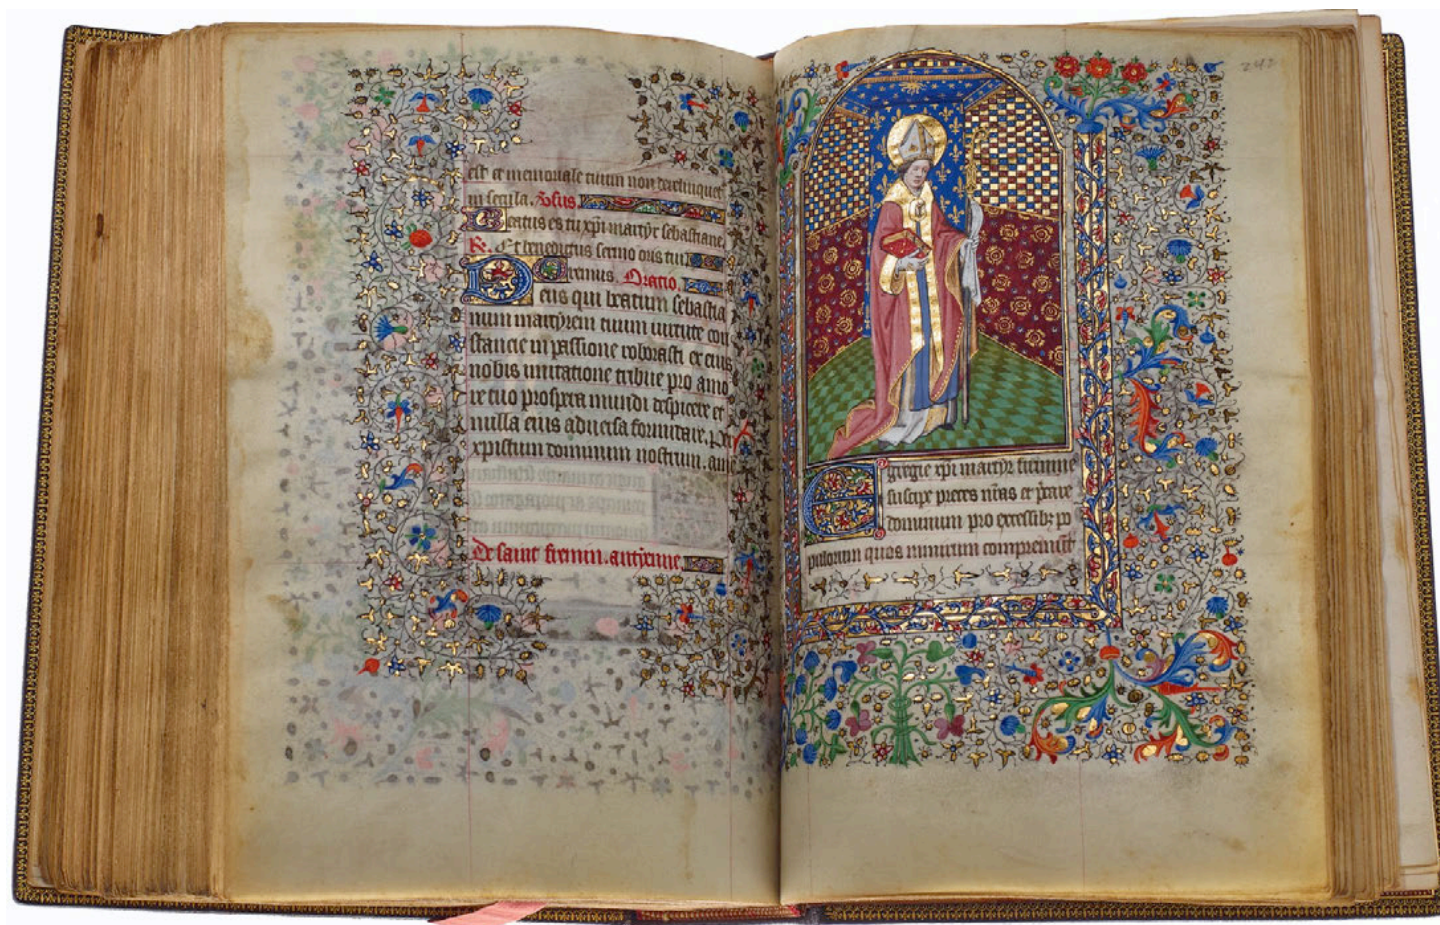 est et memoriale tuum non derelinquet
in secula. v̄sus.
Beatus es tu xp̄i martyr sebastiane
R. Et benedictus sermo oris tui
Oremus. Oratio.
Deus qui beatum sebastia
num martyrem tuum uirtute con
stancie in passione roborasti ex eius
nobis imitatione tribue pro amo
re tuo prospera mundi despicere et
nulla eius aduersa formidare. per
xpistum dominum nostrum. am
De saint fremin. antyenne
242
Egregie xp̄i martyr firmine
suscipe preces nr̄as et
dominum pro excessibꝫ po
pulorum quos nimirum compreuisti